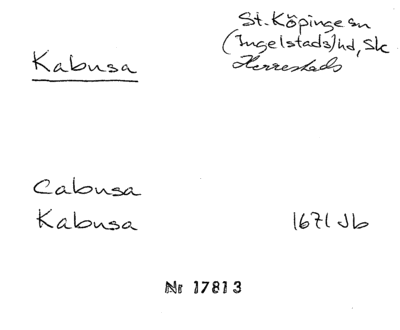 St. Köpinge sn
(Ingelstads) hd, Sk
Herrestads
Kabusa
Cabusa
Kabusa 1671 Jb
Nr 17813